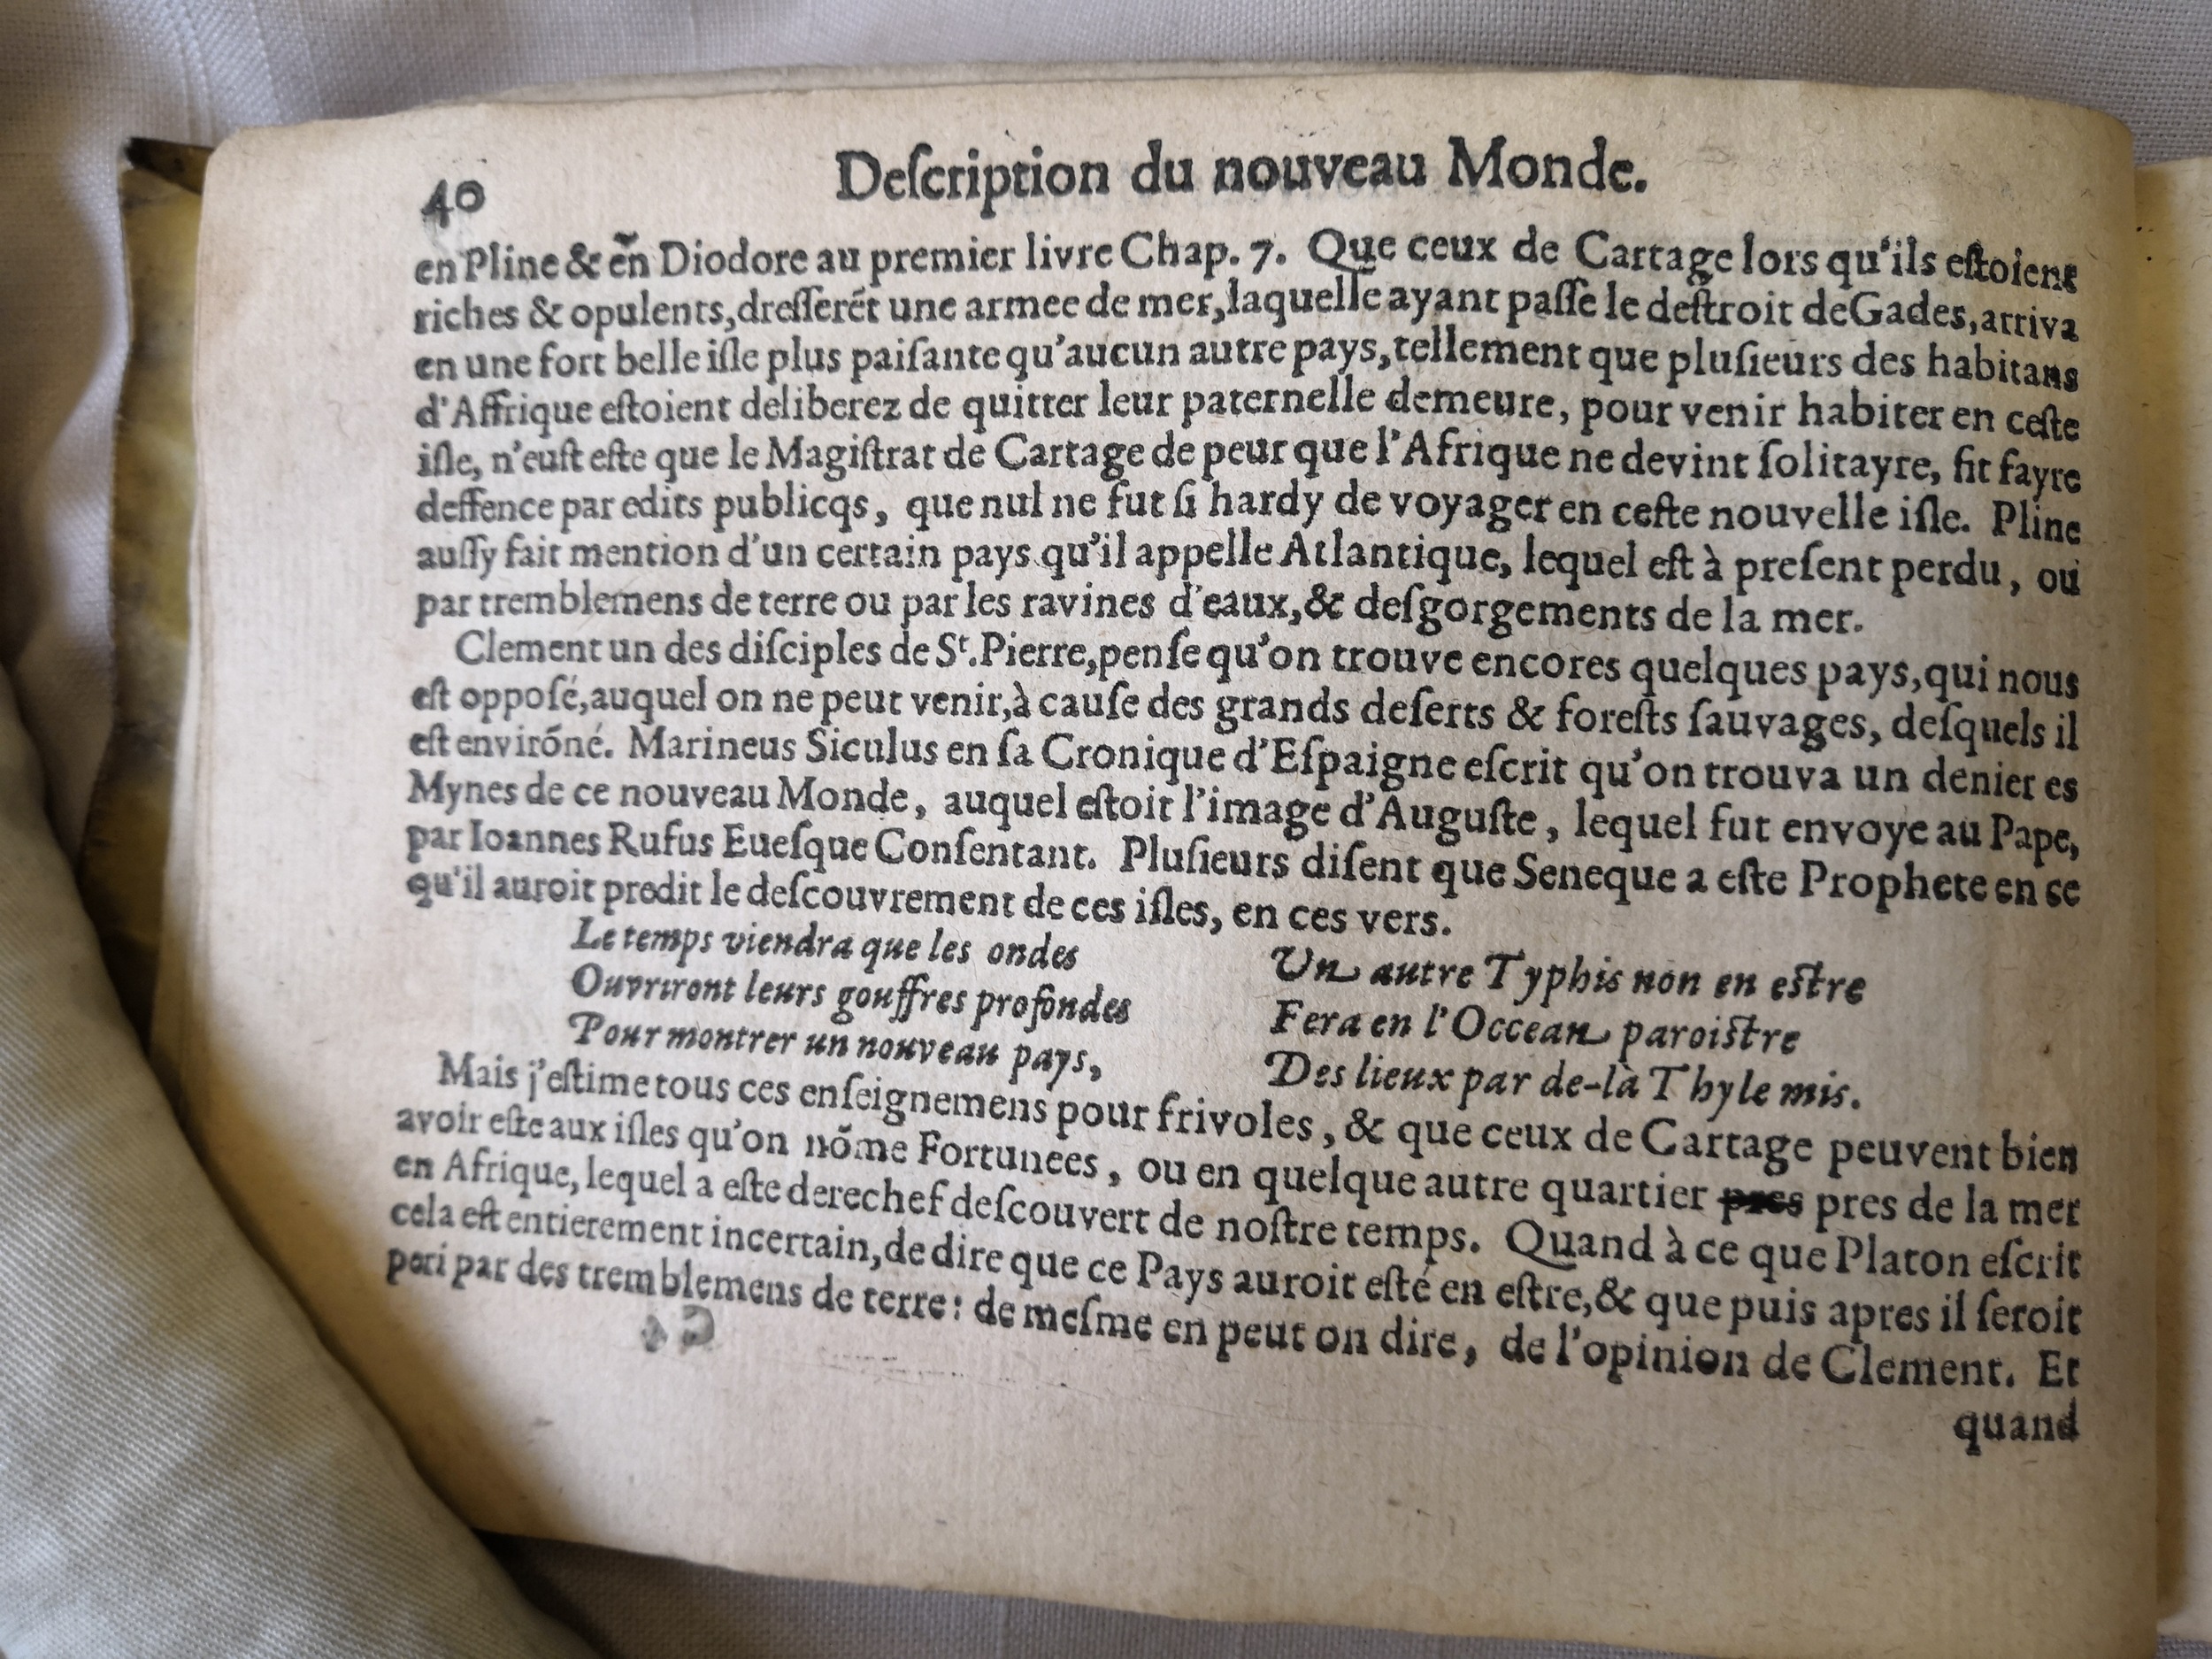 40
Deſcription du nouveau Monde.
en Pline & en Diodore au premier livre Chap. 7. Que ceux de Cartage lors qu'ils eſtoient
riches & opulents, dreſſerẽt une armee de mer, laquelle ayant paſſe le deſtroit de Gades, arriva
en une fort belle iſle plus paiſante qu'aucun autre pays, tellement que pluſieurs des habitans
d'Affrique eſtoient deliberez de quitter leur paternelle demeure, pour venir habiter en ceſte
iſle, n'euſt eſte que le Magiſtrat de Cartage de peur que l'Afrique ne devint ſolitayre, fit fayre
deffence par edits publicqs, que nul ne fut ſi hardy de voyager en ceſte nouvelle iſle. Pline
auſſy fait mention d'un certain pays qu'il appelle Atlantique, lequel eſt à preſent perdu, ou
par tremblemens de terre ou par les ravines d'eaux, & deſgorgements de la mer.
Clement un des diſciples de Sᵗ. Pierre, penſe qu'on trouve encores quelques pays, qui nous
eſt oppoſé, auquel on ne peut venir, à cauſe des grands deſerts & foreſts ſauvages, deſquels il
eſt envirõné. Marineus Siculus en ſa Cronique d'Eſpaigne eſcrit qu'on trouva un denier es
Mynes de ce nouveau Monde, auquel eſtoit l'image d'Auguſte, lequel fut envoye au Pape,
par Ioannes Rufus Eueſque Conſentant. Pluſieurs diſent que Seneque a eſte Prophete en ce
qu'il auroit predit le deſcouvrement de ces iſles, en ces vers.
Le temps viendra que les ondes
Ouvriront leurs gouffres profondes
Pour montrer un nouveau pays,
Un autre Typhis non en eſtre
Fera en l'Occean paroiſtre
Des lieux par de-là Thyle mis.
Mais j'eſtime tous ces enſeignemens pour frivoles, & que ceux de Cartage peuvent bien
avoir eſte aux iſles qu'on nõme Fortunees, ou en quelque autre quartier pres pres de la mer
en Afrique, lequel a eſte derechef deſcouvert de noſtre temps. Quand à ce que Platon eſcrit
cela eſt entierement incertain, de dire que ce Pays auroit eſté en eſtre, & que puis apres il ſeroit
peri par des tremblemens de terre: de meſme en peut on dire, de l'opinion de Clement. Et
quand